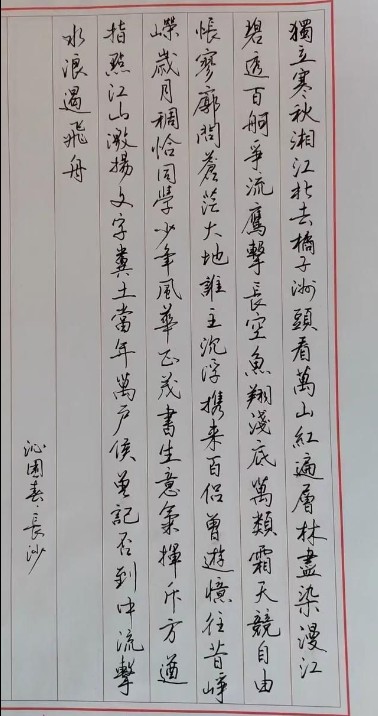 獨立寒秋湘江北去橘子洲頭看萬山紅遍層林盡染漫江
碧透百舸爭流鷹擊長空魚翔淺底萬類霜天競自由
悵寥廓問蒼茫大地誰主沉浮携来百侣曾遊憶往昔崢
嶸歲月稠恰同學少年風華正茂書生意氣揮斥方遒
指點江山激揚文字糞土當年萬戶侯曾記否到中流擊
水浪遏飛舟
沁園春·長沙